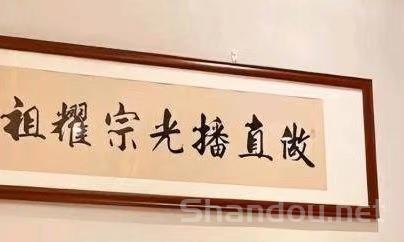 做直播光宗耀祖
Shandou.net